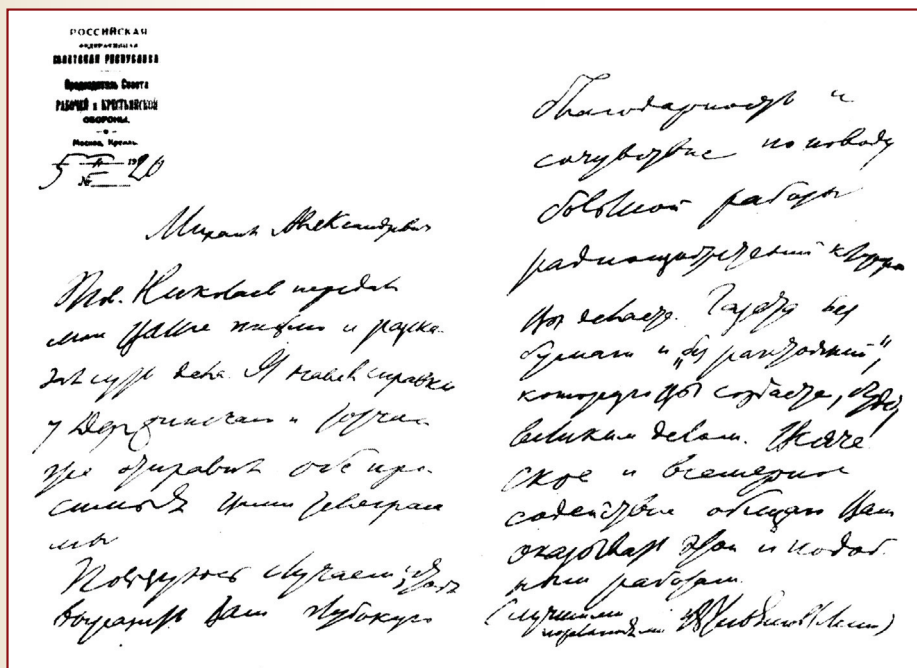 РОССИЙСКАЯ
ФЕДЕРАТИВНАЯ
СОВЕТСКАЯ РЕСПУБЛИКА
Председатель Совета
РАБОЧЕЙ и КРЕСТЬЯНСКОЙ
ОБОРОНЫ.
Москва, Кремль.
5 II 1920
№
Михаил Александрович
Тов. Николаев передал
мне Ваше письмо и расска-
зал суть дела. Я навел справки
у Дзержинского и тотчас
же отправил обе про-
симых Вами телеграм
мы
Пользуюсь случаем, чтобы
выразить Вам глубокую
благодарность и
сочувствие по поводу
большой работы
радиоизобретений, которую
Вы делаете. Газета без
бумаги и „без расстояний",
которую Вы создаете, будет
великим делом. Всяче
ское и всемерное
содействие обещаю Вам
оказывать этой и подоб
ным работам.
С лучшими
пожеланиями В. Ульянов (Ленин)